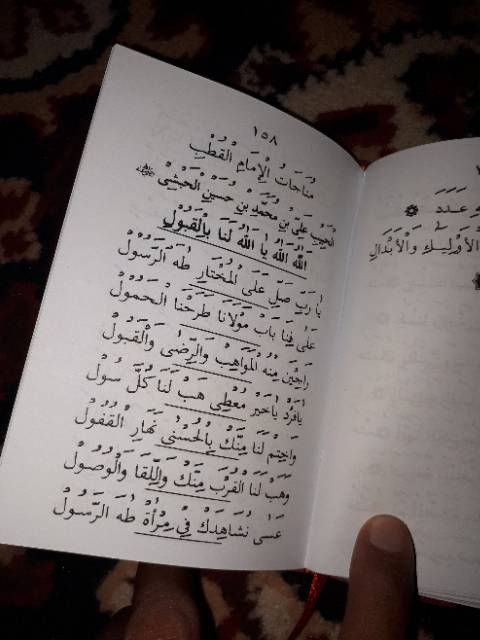 ١٥٨
مُنَاجَاتُ الْإِمَامِ الْقُطْبِ
الْحَبِيْبِ عَلِيِّ بْنِ مُحَمَّدِ بْنِ حُسَيْنِ الْحَبْشِيْ
اَللهْ اَللهْ يَا اَللهْ لَنَا بِالْقَبُوْلْ
يَا رَبِّ صَلِّ عَلَى الْمُخْتَارِ طٰهَ الرَّسُوْلْ
عَلَى فِنَا بَابْ مَوْلَانَا طَرَحْنَا الْحُمُوْلْ
رَاجِيْنَ مِنْهُ الْمَوَاهِبْ وَالرِّضٰى وَالْقَبُوْلْ
يَافَرْدْ يَاخَيْرَ مُعْطِيْ هَبْ لَنَا كُلَّ سُوْلْ
وَاخْتِمْ لَنَا مِنْكَ بِالْحُسْنٰى نَهَارَ الْقُفُوْلْ
وَهَبْ لَنَا الْقُرْبَ مِنْكَ وَاللِّقَا وَالْوُصُوْلْ
عَسٰى نُشَاهِدَكْ فِيْ مِرْأٰةْ طٰهَ الرَّسُوْلْ
عَدَدَ
وَالْأَبْدَالِ